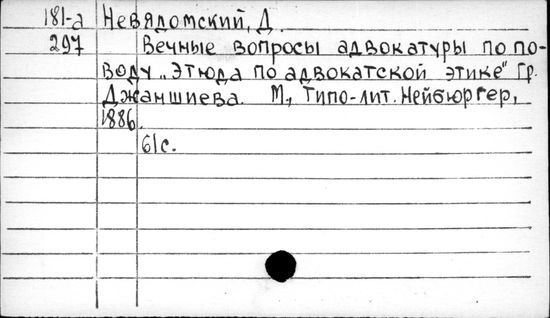 181-а Невядомский, Д.
297 Вечные вопросы адвокатуры по по-
воду „Этюда по адвокатской этике" Гр.
Джаншиева. М., Типо-лит. Нейбюргер,
1886.
61с.